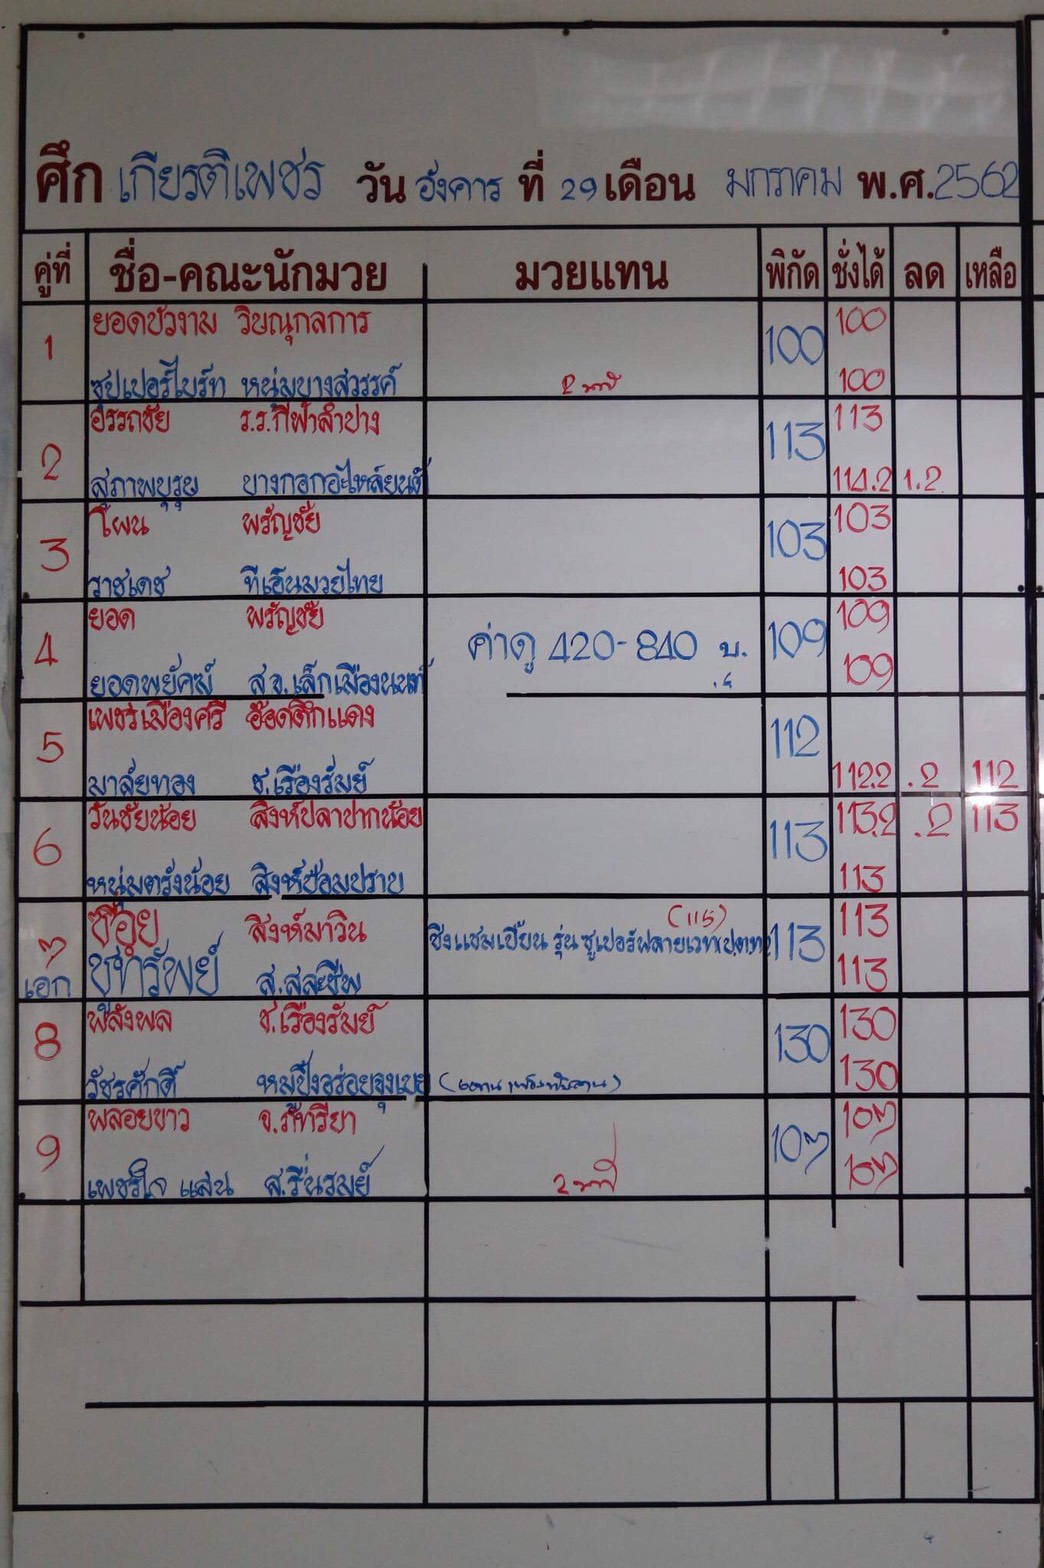 ศึก เกียรติเพชร วัน อังคาร ที่ 29 เดือน มกราคม พ.ศ.2562
คู่ที่ ชื่อ-คณะนักมวย มวยแทน พิกัด ชั่งได้ ลด เหลือ
1 ยอดบัวงาม วิษณุกลการ 100 100
ซุปเปอร์ไบร์ท หนุ่มบางสวรรค์ 100
2 อรรถชัย ร.ร.กีฬาลำปาง 113 113
สุภาพบุรุษ บางกอกอะไหล่ยนต์ 114.2 1.2
3 โผน พรัญชัย 103 103
ราชเดช ทีเอ็นมวยไทย 103
4 ยอด พรัญชัย ค่าดู 420-840 บ. 109 109
ยอดพยัคฆ์ ส.จ.เล็กเมืองนนท์ 109
5 เพชรเมืองศรี อ๊อดตึกแดง 112
มาลัยทอง ช.เรืองรัมย์ 112.2 .2 112
6 วันชัยน้อย สิงห์ปลาปากน้อย 113 113.2 .2 113
หนุ่มตรังน้อย สิงห์ป้อมปราบ 113
7 สิงห์มาวิน (115) 113 113
เอก ส.สละชีพ ชิงแชมเปี้ยน รุ่น ซูเปอร์ฟลายเวท 113
8 พลังพล ช.เรืองรัมย์ 130 130
วัชรศักดิ์ หมูปิ้งอร่อยจุงเบย 130
9 พลอยขาว จ.ภัทรียา 107 107
เพชรใจ แสน ส.รื่นรมย์ 107